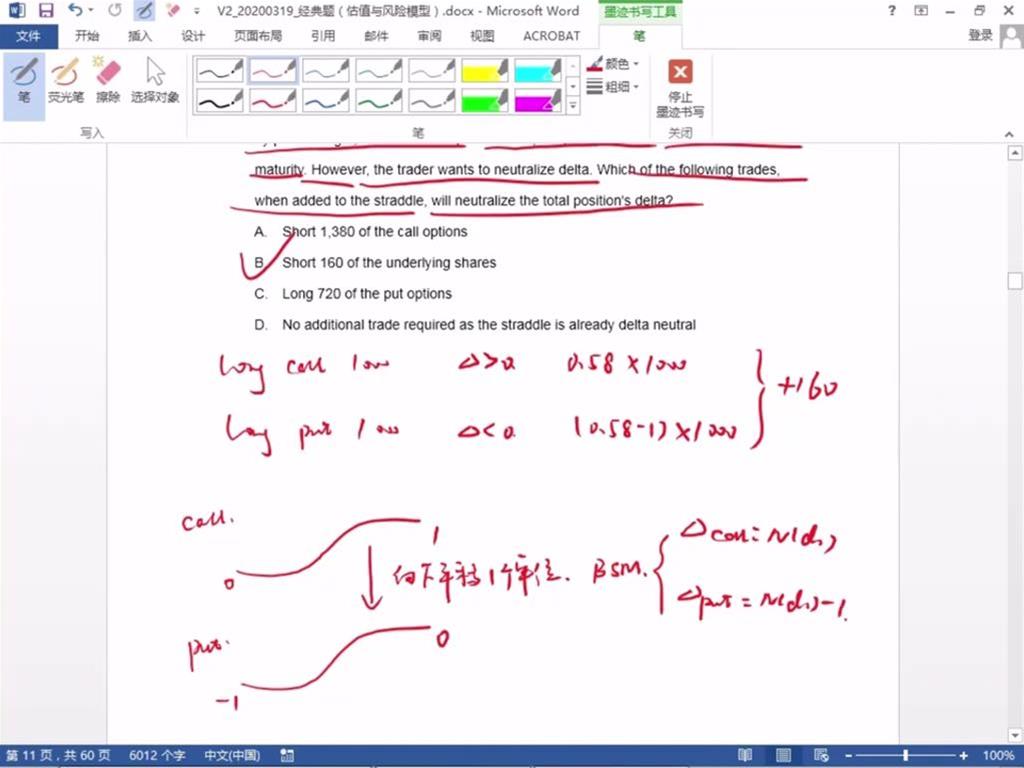 V2_20200319_经典题（估值与风险模型）.docx - Microsoft Word
墨迹书写工具
文件 开始 插入 设计 页面布局 引用 邮件 审阅 视图 ACROBAT 笔 登录
笔 荧光笔 擦除 选择对象 颜色 粗细 停止 墨迹书写
写入 笔 关闭
maturity. However, the trader wants to neutralize delta. Which of the following trades,
when added to the straddle, will neutralize the total position's delta?
A. Short 1,380 of the call options
B. Short 160 of the underlying shares
C. Long 720 of the put options
D. No additional trade required as the straddle is already delta neutral
long call 1000 Δ>0 0.58×1000
+160
long put 1000 Δ<0 (0.58-1)×1000
call.
0 1
向下平移1个单位. BSM. Δcall=N(d1)
Δput=N(d1)-1.
put.
-1 0
第 11 页，共 60 页 6012 个字 中文(中国) 100%